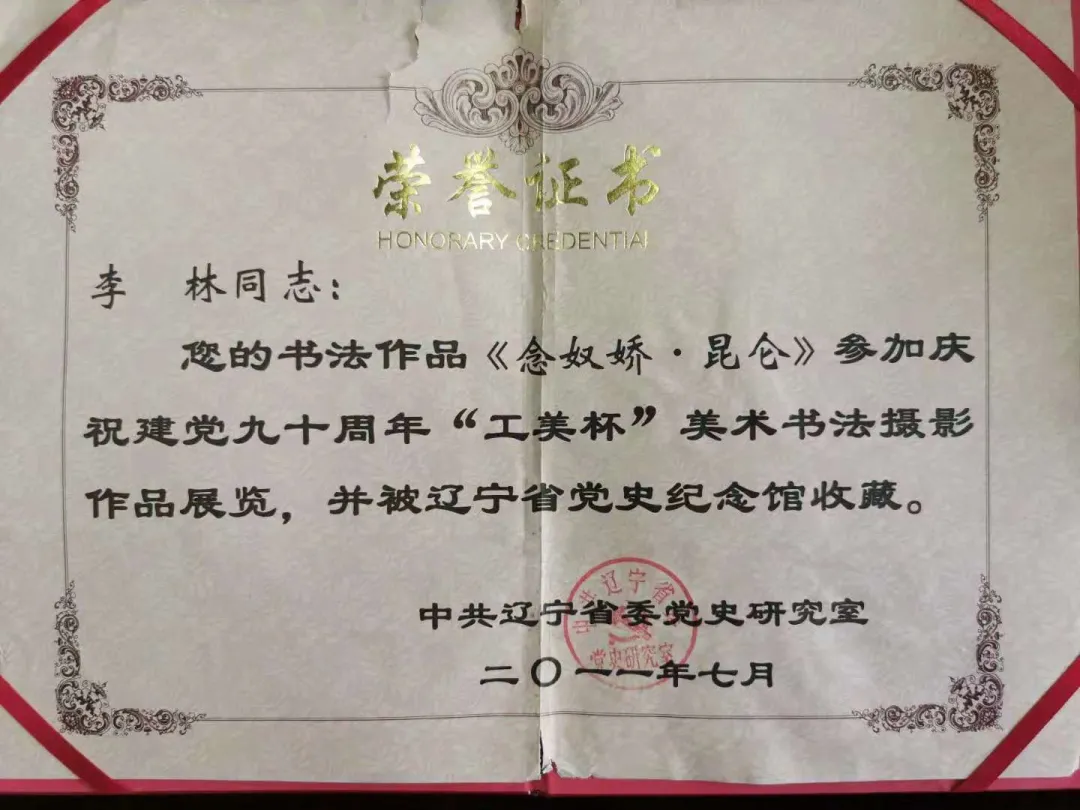 荣誉证书
HONORARY CREDENTIAL
李 林同志：
您的书法作品《念奴娇·昆仑》参加庆
祝建党九十周年“工美杯”美术书法摄影
作品展览，并被辽宁省党史纪念馆收藏。
中共辽宁省委党史研究室
二〇一一年七月
中共辽宁省
党史研究室